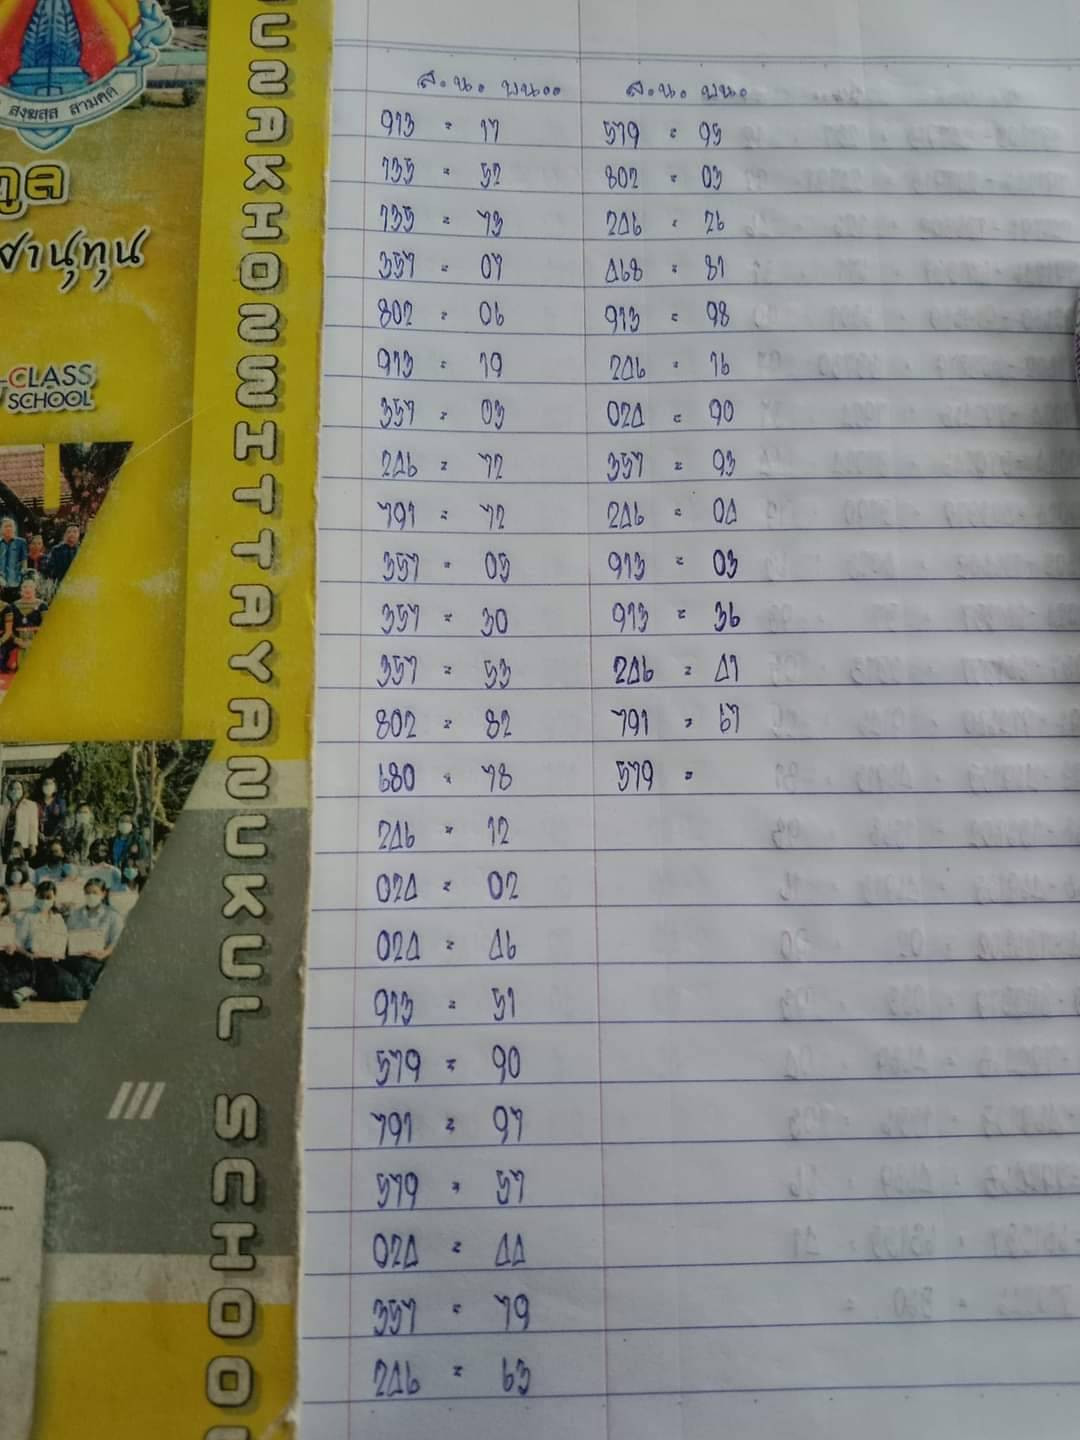 สงฆสฺส สามคฺคี
กูล
ศานุทุน
-CLASS
SCHOOL
USAKHONWITTAYANUKUL SCHOOL
ส.น. บน..
913 = 17
135 = 52
135 = 73
357 = 07
802 = 06
913 = 19
357 = 03
246 = 72
791 = 72
357 = 05
357 = 30
357 = 53
802 = 82
680 = 78
246 = 12
024 = 02
024 = 46
913 = 51
579 = 90
791 = 97
579 = 57
024 = 44
357 = 79
246 = 63
ส.น. บน.
579 = 95
802 = 03
246 = 26
468 = 81
913 = 98
246 = 16
024 = 90
357 = 93
246 = 04
913 = 03
913 = 36
246 = 41
791 = 67
579 =